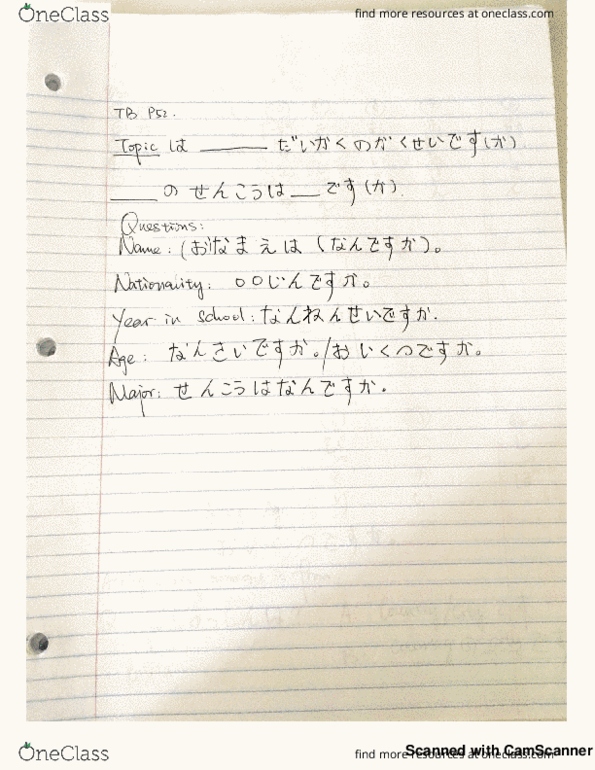 OneClass find more resources at oneclass.com
TB P52.
Topic は ______ だいがくのがくせいです(か)
____ の せんこうは ___ です(か).
Questions:
Name: (お)なまえは (なんですか)。
Nationality: ○○じんですか。
Year in school: なんねんせいですか.
Age: なんさいですか。/おいくつですか。
Major: せんこうはなんですか.
OneClass find more resources at oneclass.com
Scanned with CamScanner